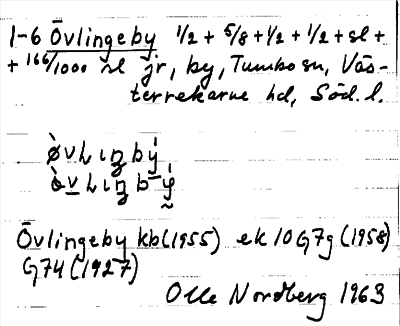 1-6 Övlingeby 1/2 + 5/8 + 1/2 + 1/2 + sl +
+ 166/1000 sl jr, by, Tumbo sn, Väs-
terrekarne hd, Söd. l.
Övlingeby kb(1955) ek 10G7g (1958)
G74 (1927)
Olle Nordberg 1963